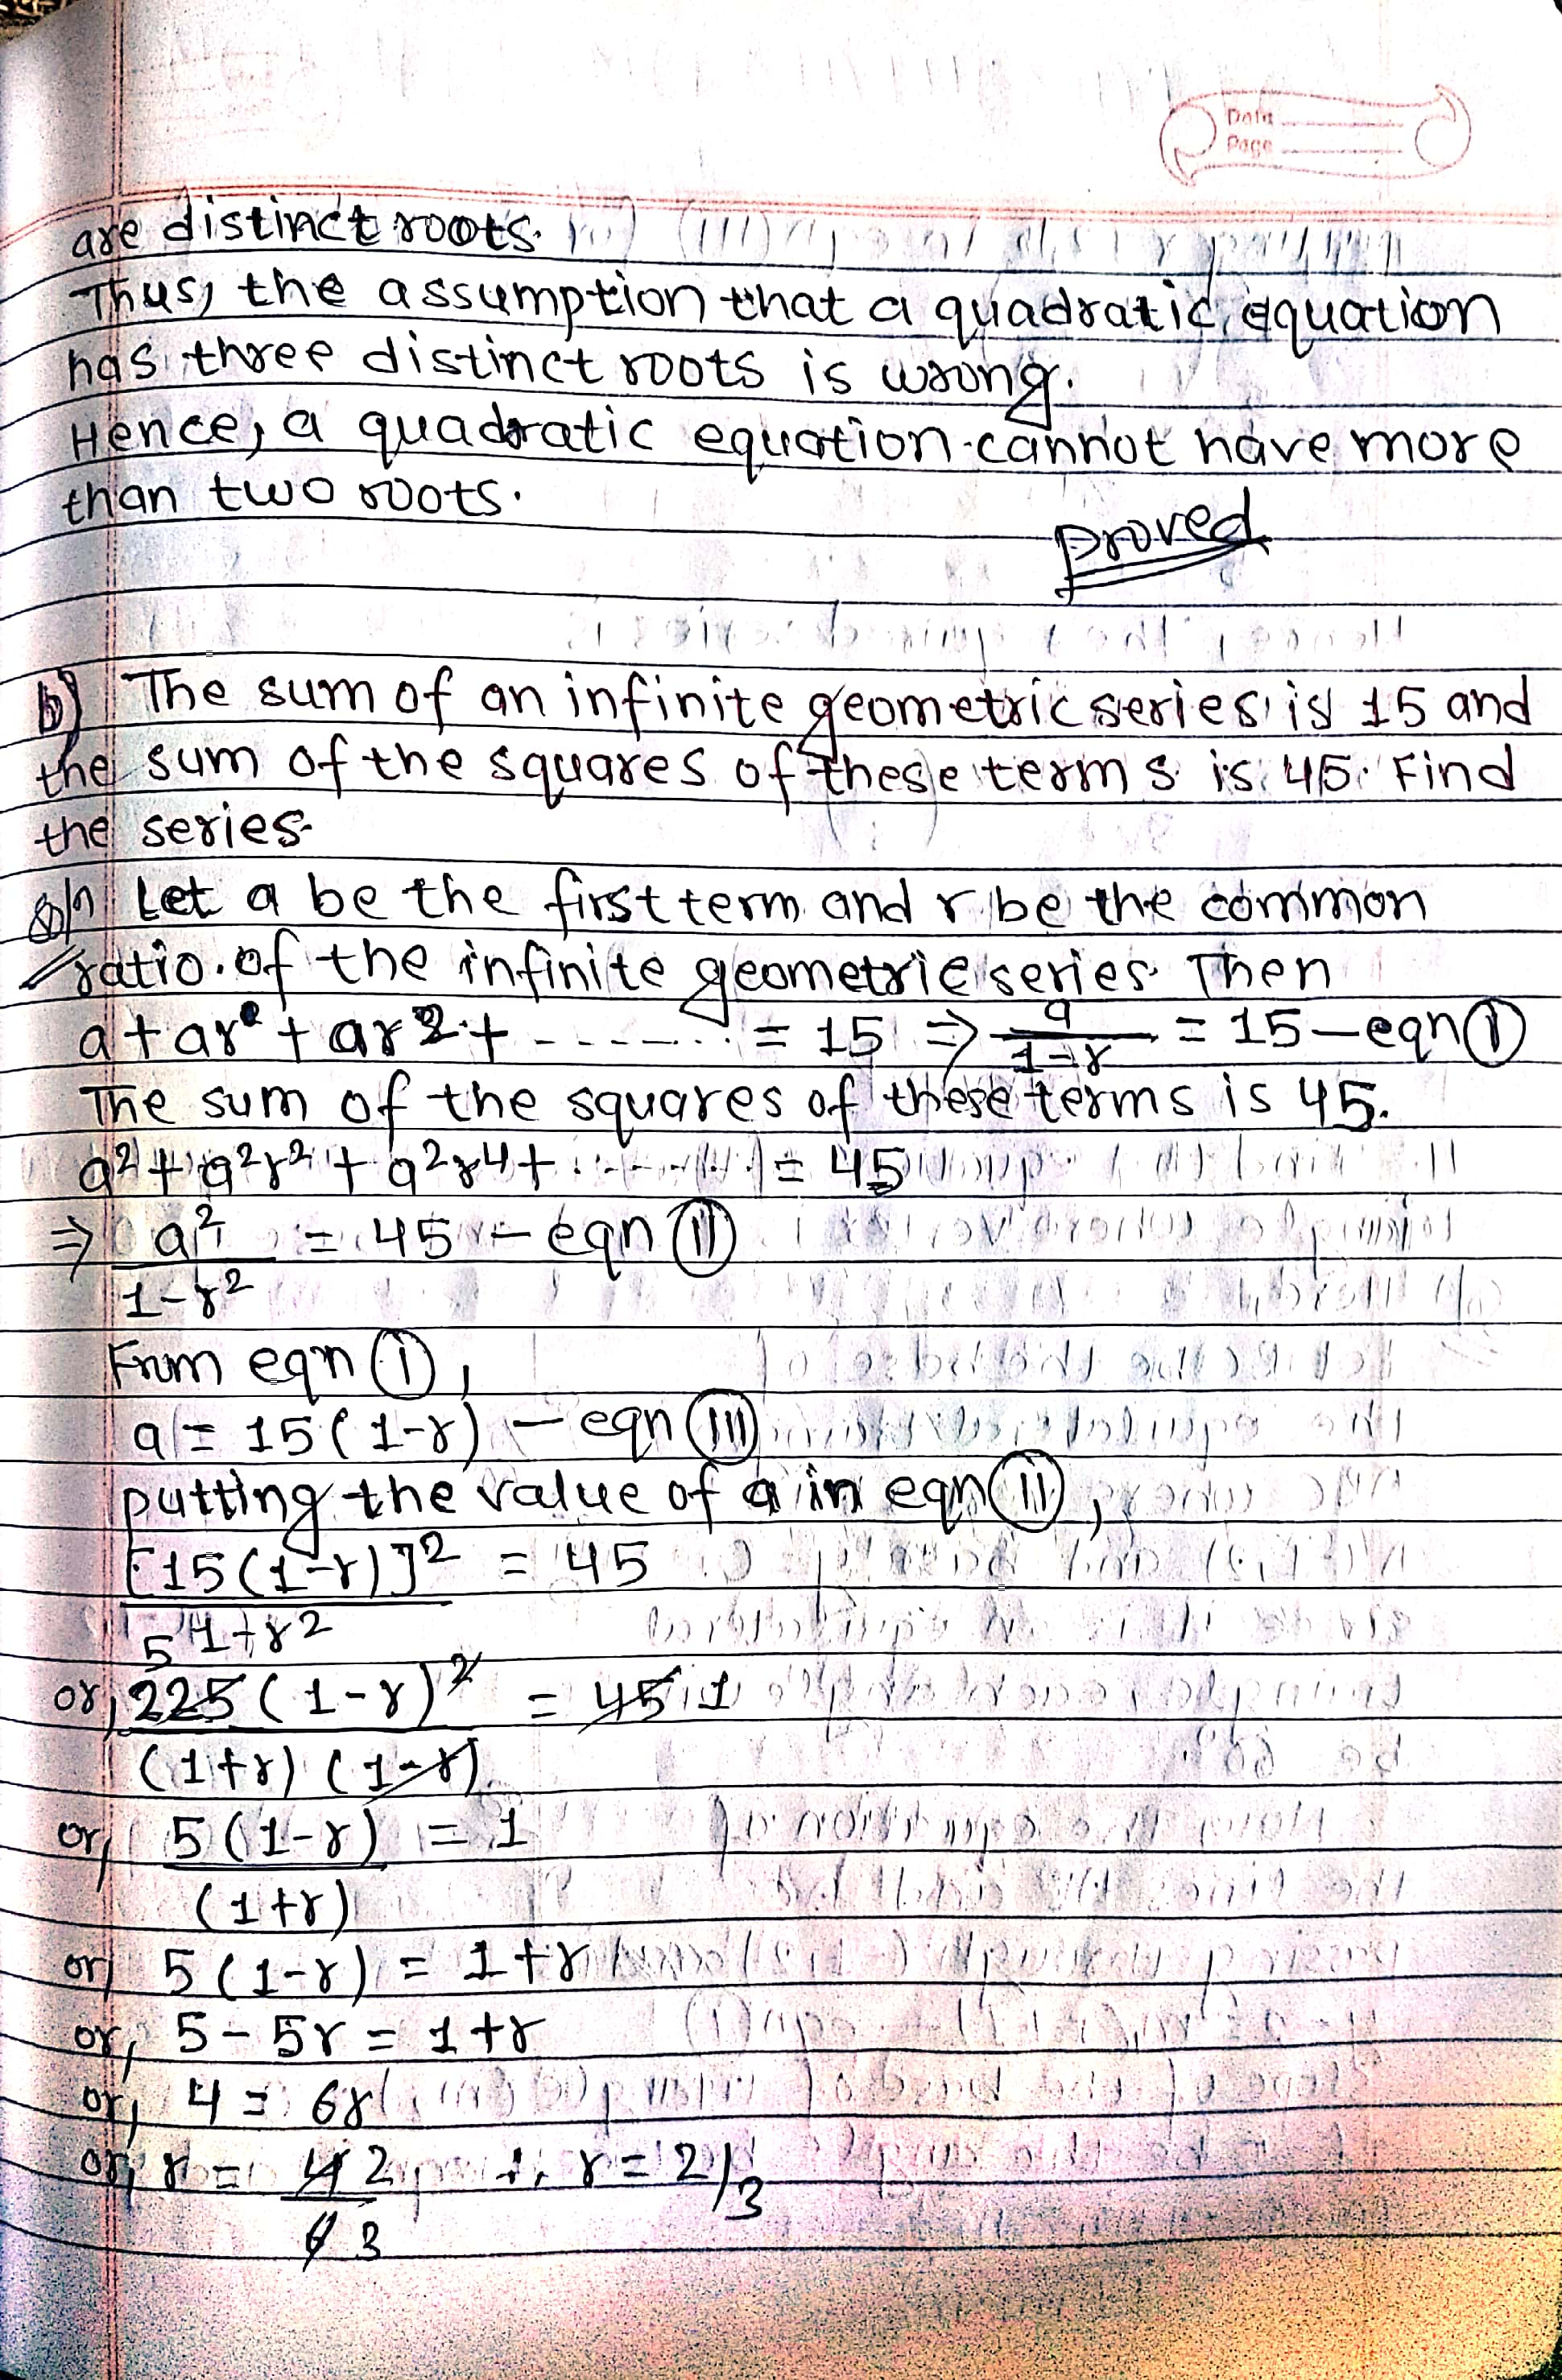 Date
Page
are distinct roots.
Thus, the assumption that a quadratic equation
has three distinct roots is wrong.
Hence, a quadratic equation cannot have more
than two roots.
proved
b) The sum of an infinite geometric series is 15 and
the sum of the squares of these terms is 45. Find
the series.
Soln Let a be the first term and r be the common
ratio of the infinite geometric series. Then
a + ar + ar2 + ------- = 15 ⇒ a/1-r = 15 — eqn (i)
The sum of the squares of these terms is 45.
a² + a²r² + a²r⁴ + ....... = 45
⇒ a²/1-r² = 45 — eqn (ii)
From eqn (i),
a = 15(1-r) — eqn (iii)
putting the value of a in eqn (ii),
[15(1-r)]² = 45
1+r2
5
or, 225(1-r)² = 45 1
(1+r) (1-r)
or, 5(1-r) = 1
(1+r)
or, 5(1-r) = 1+r
or, 5 - 5r = 1+r
or, 4 = 6r
or, r = 4 2 ∴ r = 2/3
6 3